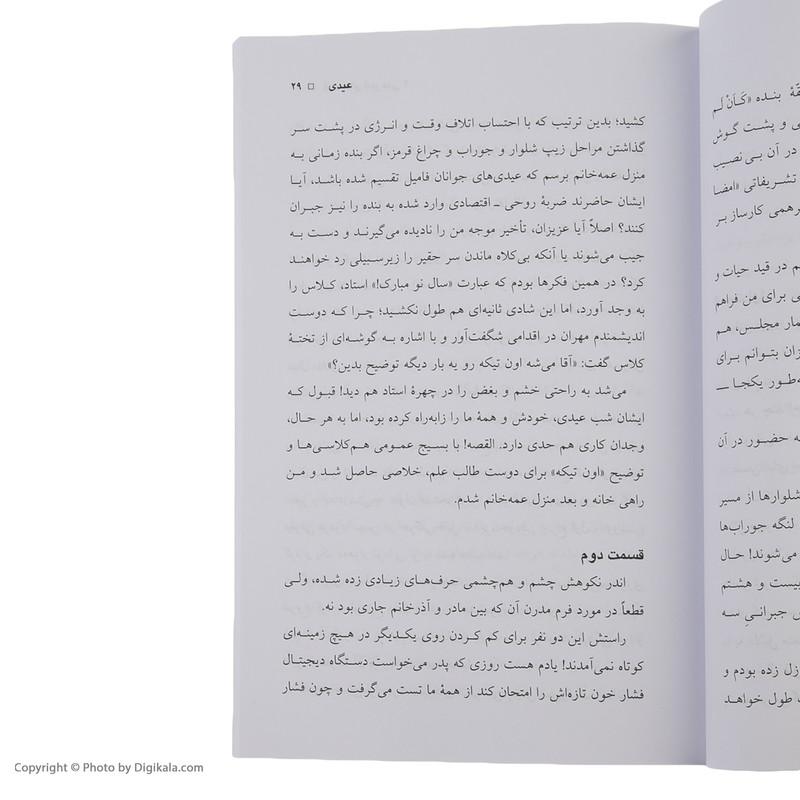 عیدی □ ۲۹
کشید؛ بدین ترتیب که با احتساب اتلاف وقت و انرژی در پشت سر
گذاشتن مراحل زیپ شلوار و جوراب و چراغ قرمز، اگر بنده زمانی به
منزل عمه‌خانم برسم که عیدی‌های جوانان فامیل تقسیم شده باشد، آیا
ایشان حاضرند ضربهٔ روحی ـ اقتصادی وارد شده به بنده را نیز جبران
کنند؟ اصلاً آیا عزیزان، تأخیر موجه من را نادیده می‌گیرند و دست به
جیب می‌شوند یا آنکه بی‌کلاه ماندن سر حقیر را زیرسبیلی رد خواهند
کرد؟ در همین فکرها بودم که عبارت «سال نو مبارک!» استاد، کلاس را
به وجد آورد، اما این شادی ثانیه‌ای هم طول نکشید؛ چرا که دوست
اندیشمندم مهران در اقدامی شگفت‌آور و با اشاره به گوشه‌ای از تختهٔ
کلاس گفت: «آقا می‌شه اون تیکه رو یه بار دیگه توضیح بدین؟»
می‌شد به راحتی خشم و بغض را در چهرهٔ استاد هم دید! قبول که
ایشان شب عیدی، خودش و همهٔ ما را زابه‌راه کرده بود، اما به هر حال،
وجدان کاری هم حدی دارد. القصه! با بسیج عمومی هم‌کلاسی‌ها و
توضیح «اون تیکه» برای دوست طالب علم، خلاصی حاصل شد و من
راهی خانه و بعد منزل عمه‌خانم شدم.
قسمت دوم
اندر نکوهش چشم و هم‌چشمی حرف‌های زیادی زده شده، ولی
قطعاً در مورد فرم مدرن آن که بین مادر و آذرخانم جاری بود نه.
راستش این دو نفر برای کم کردن روی یکدیگر در هیچ زمینه‌ای
کوتاه نمی‌آمدند! یادم هست روزی که پدر می‌خواست دستگاه دیجیتال
فشار خون تازه‌اش را امتحان کند از همهٔ ما تست می‌گرفت و چون فشار
بنده «کَأَنْ لَم
ی و پشت گوش
در آن بی‌نصیب
تشریفاتی «امضا
رهمی کارساز بر
م در قید حیات و
ی برای من فراهم
مار مجلس، هم
زان بتوانم برای
ه‌طور یکجا ـ
ه حضور در آن
شلوارها از مسیر
لنگه جوراب‌ها
می‌شوند! حال
بیست و هشتم
س جبرانیِ سه
زل زده بودم و
ت طول خواهد
Copyright © Photo by Digikala.com